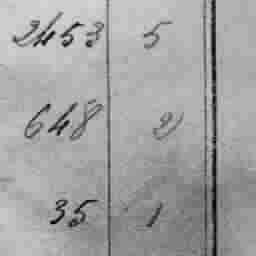 2453 5
648 2
35 1